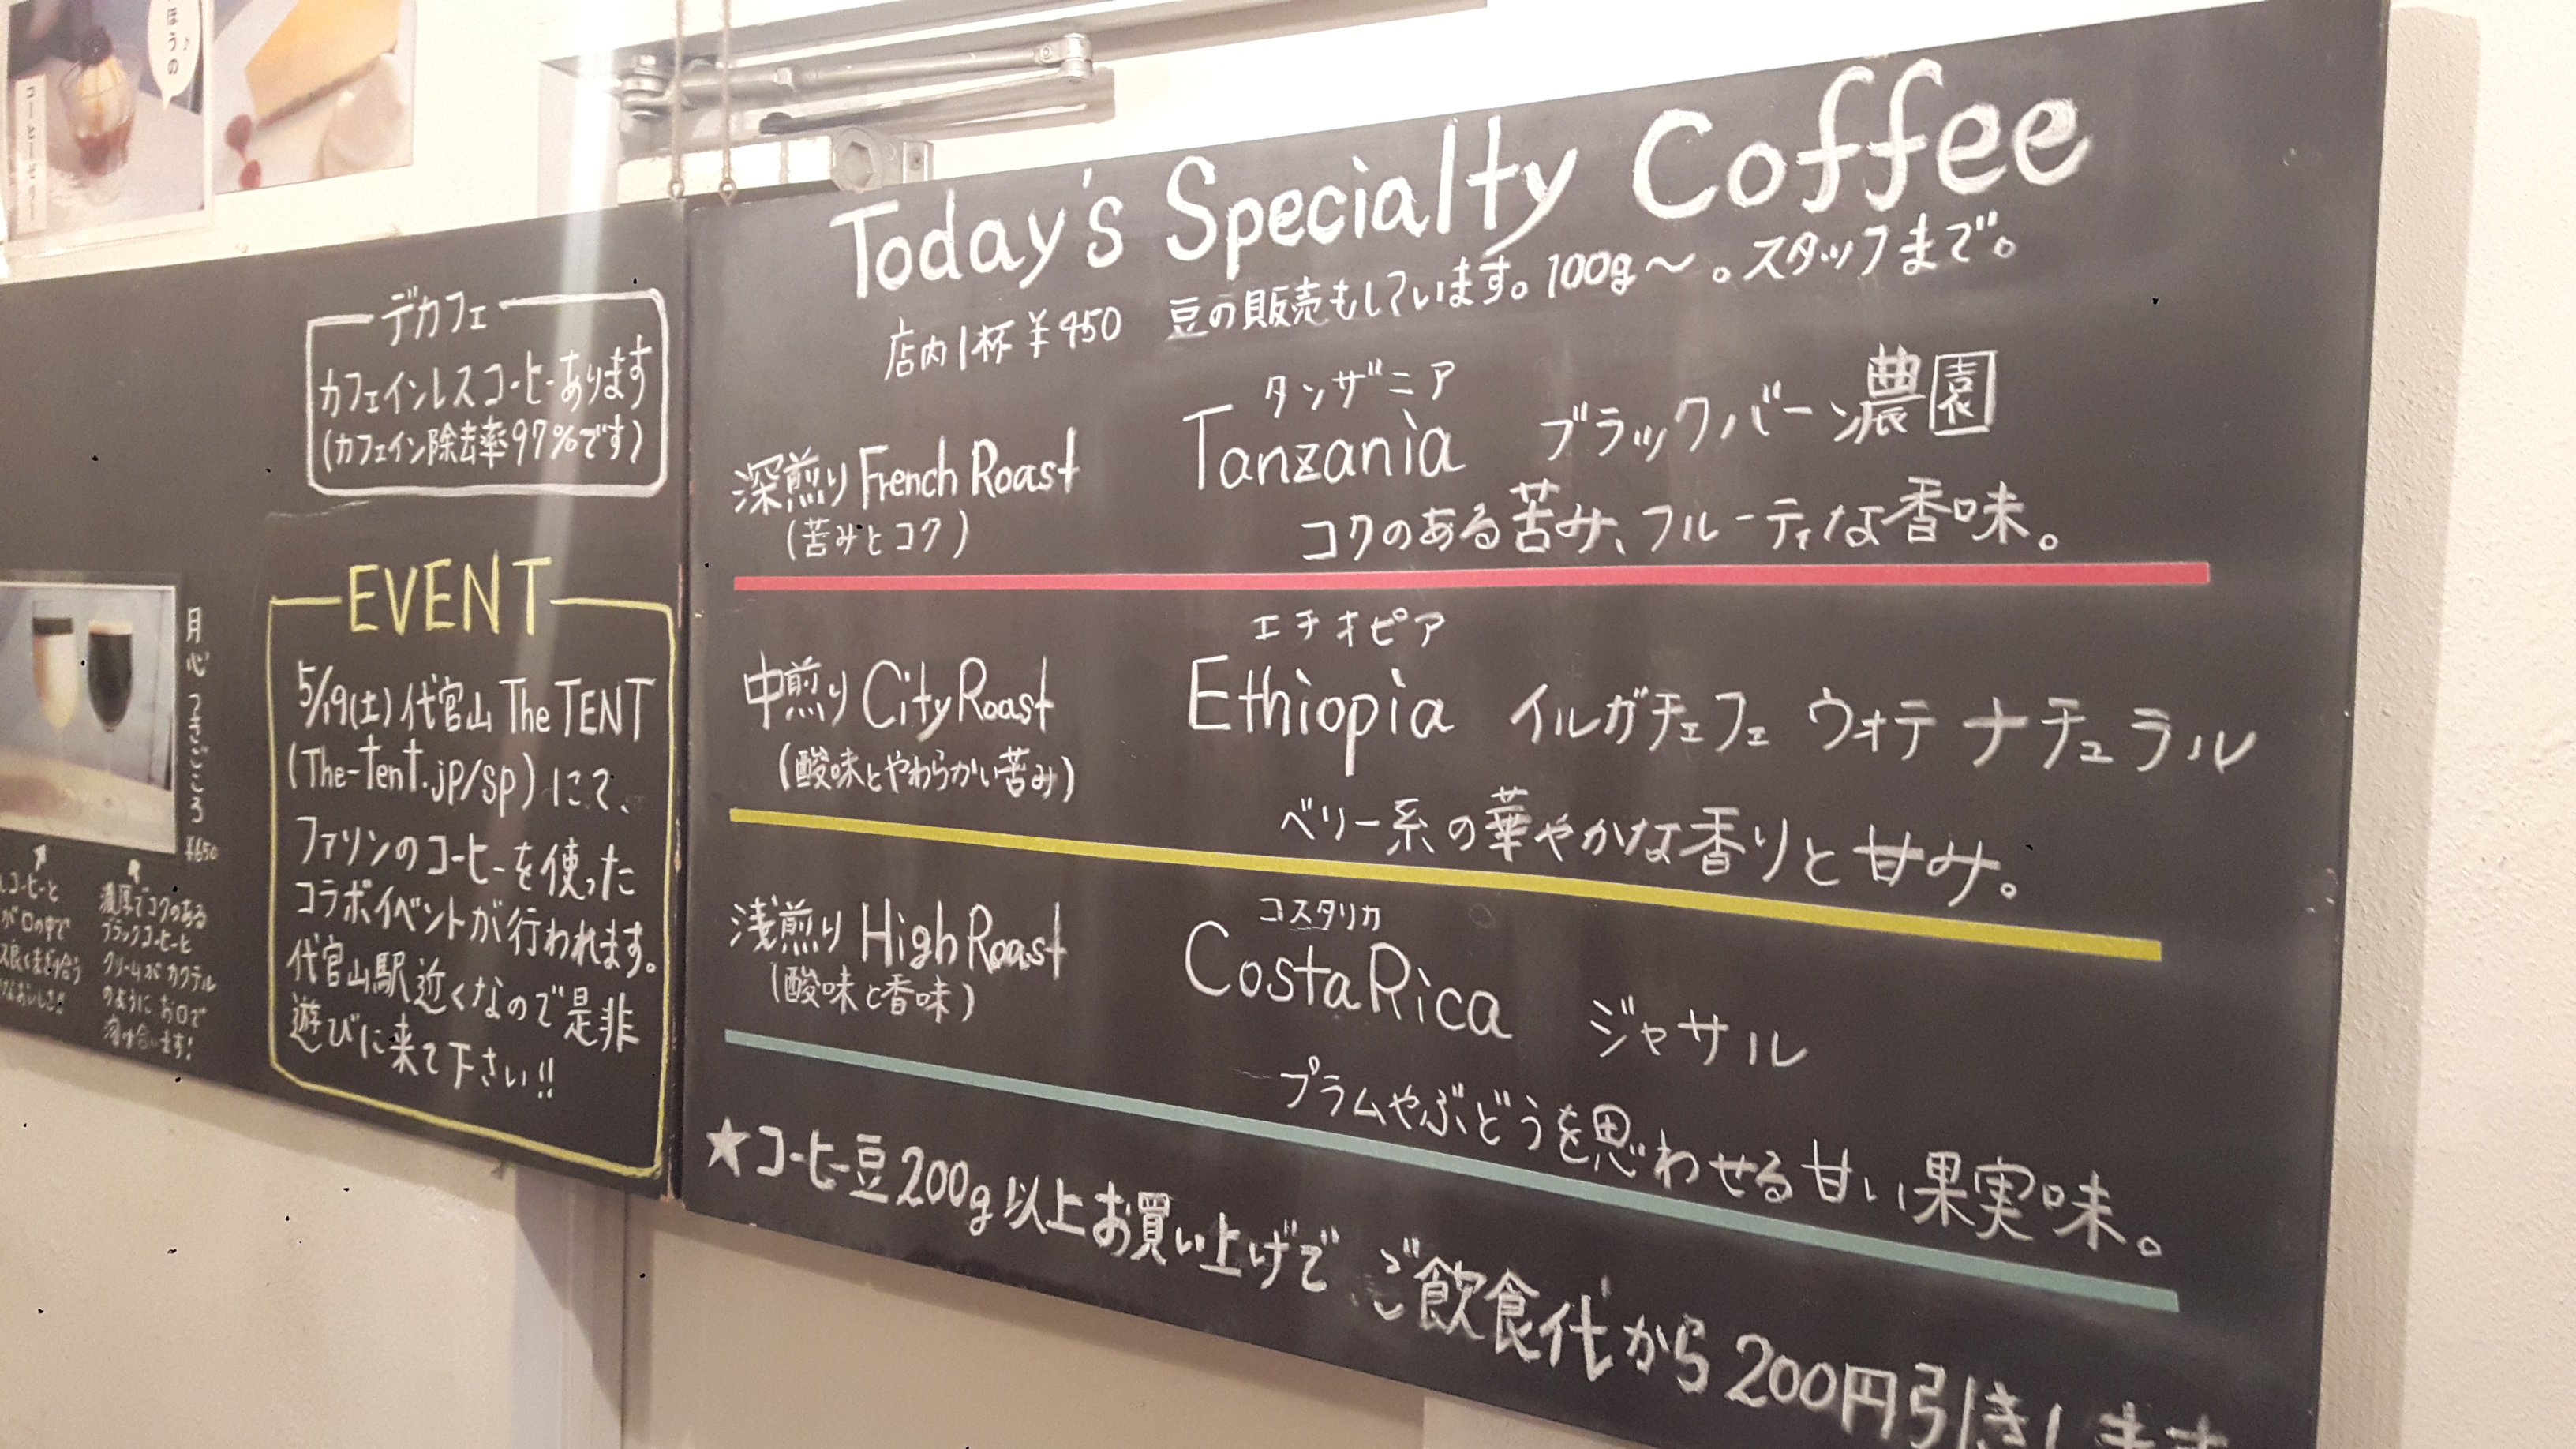 ほうの♪
コーヒーゼリー
デカフェ
カフェインレスコーヒーあります
(カフェイン除去率97%です)
EVENT
5/19(土)代官山 The TENT
(The-tent.jp/sp)にて、
ファソンのコーヒーを使った
コラボイベントが行われます。
代官山駅近くなので是非
遊びに来て下さい!!
月心 つきごころ
¥650
コーヒーと
が口の中で
良くまざり合う
濃厚でコクのある
ブラックコーヒーと
クリームがカクテル
のようにお口で
溶け合います!
Today's Specialty Coffee
店内1杯¥450 豆の販売もしています。100g〜。スタッフまで。
深煎り French Roast
(苦みとコク)
タンザニア
Tanzania ブラックバーン農園
コクのある苦み、フルーティな香味。
中煎り City Roast
(酸味とやわらかい苦み)
エチオピア
Ethiopia イルガチェフェ ウォテ ナチュラル
ベリー系の華やかな香りと甘み。
浅煎り High Roast
(酸味と香味)
コスタリカ
Costa Rica ジャサル
プラムやぶどうを思わせる甘い果実味。
★コーヒー豆200g以上お買い上げで、ご飲食代から200円引きします